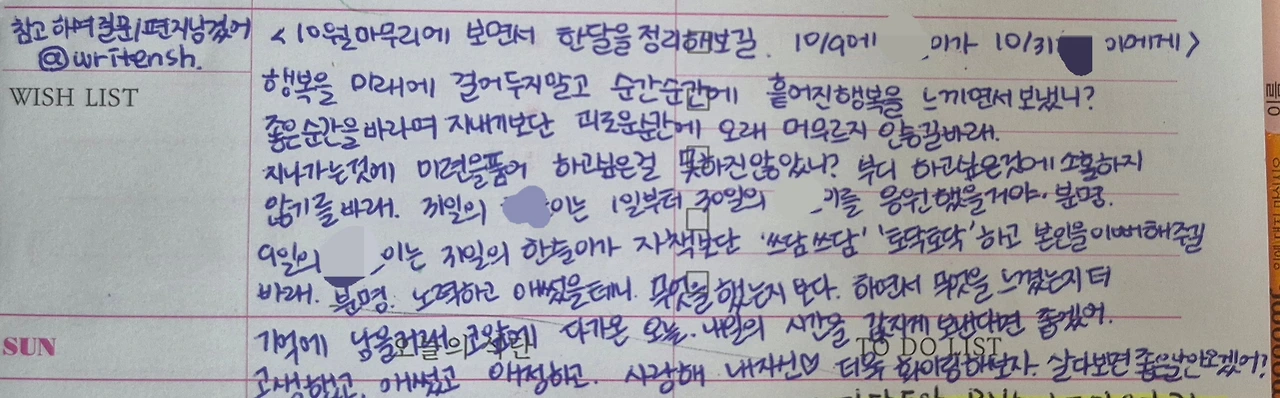 참고하며질문/편지남겼어
@writensh.
<10월마무리에 보면서 한달을정리해보길. 10/9에 이가 10/31 이에게>
행복을 미래에 걸어두지말고 순간순간에 흩어진행복을 느끼면서보냈니?
WISH LIST
좋은순간을바라며 지내기보단 괴로운순간에 오래 머무르지 안흥길바래.
지나가는것에 미련을품어 하고싶은걸 못하진않았니? 부디 하고싶은것에소홀하지
않기를바래. 31일의 이는 1일부터 30일의 기를 응원했을거야. 분명.
9일의 이는 31일의 한들이가 자책보단 '쓰담쓰담' '토닥토닥'하고 본인을이뻐해주길
바래. 분명. 노력하고 애썼을테니. 무엇을했는지 보다. 하면서 무엇을 느꼈는지 더
기억에 남을 다가온 오늘. 내일의 시간을 값지게보낸다면 좋겠어.
SUN
오늘의 식단
TO DO LIST
고생했고. 애썼고 애정하고. 사랑해 내자신♡ 더욱 화이팅해보자. 살다보면좋은날안오겠어?